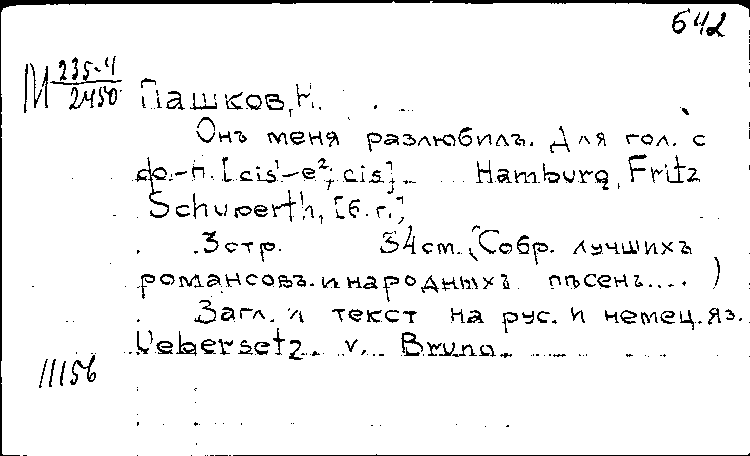 642
М 235-4/2450 Пашков, Н.
Онъ меня разлюбилъ. Для гол. с
ф.-п. [cis¹–e²; cis]. Hamburg, Fritz
Schuberth, [б.г.]
3 стр. 34 cm. (Собр. лучшихъ
романсовъ и народныхъ пѣсенъ....)
Загл. и текст на рус. и немец. яз.
Uebersetz. v. Bruno.
11156